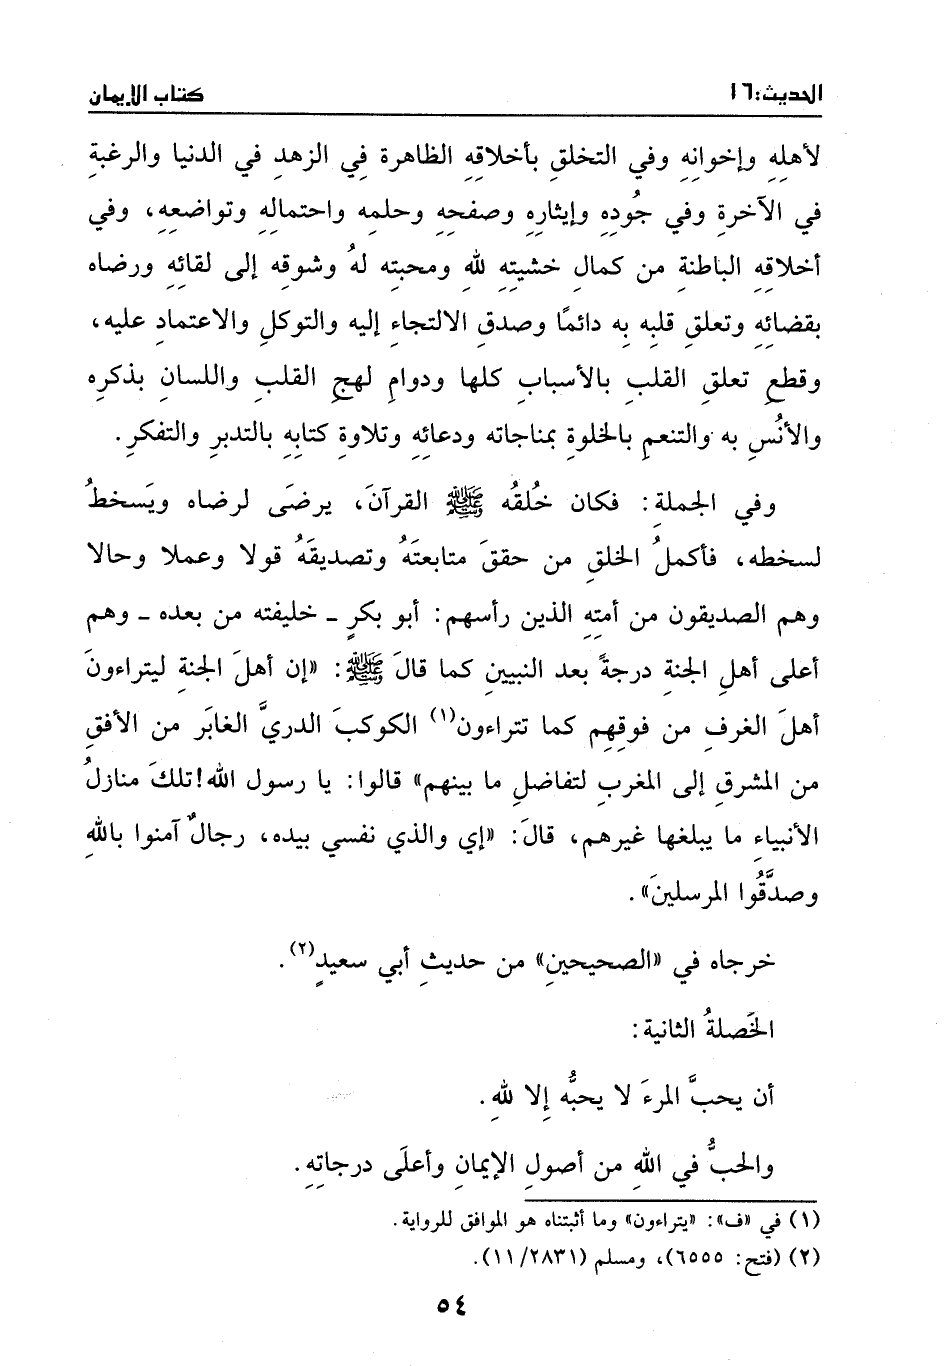 الحديث: ١٦
كتاب الإيمان
لأهلِهِ وإخوانِهِ وفي التخلقِ بأخلاقِهِ الظاهرة في الزهدِ في الدنيا والرغبةِ
في الآخرةِ وفي جُودِهِ وإيثارِهِ وصفحِهِ وحلمِهِ واحتمالِهِ وتواضعِهِ، وفي
أخلاقِهِ الباطنةِ من كمالِ خشيتِهِ للهِ ومحبتِه لهُ وشوقِه إلى لقائِهِ ورضاه
بقضائِهِ وتعلقِ قلبِهِ به دائمًا وصدقِ الالتجاءِ إليه والتوكلِ والاعتمادِ عليه،
وقطعِ تعلقِ القلبِ بالأسبابِ كلها ودوامِ لهجِ القلبِ واللسانِ بذكرِه
والأنُسِ به والتنعمِ بالخلوةِ بمناجاته ودعائِهِ وتلاوةِ كتابِهِ بالتدبرِ والتفكرِ.
وفي الجملةِ: فكان خُلقُه ﷺ القرآنَ، يرضَى لرضاه ويَسخطُ
لسخطه، فأكملُ الخلقِ من حققَ متابعتَهُ وتصديقَهُ قولا وعملا وحالا
وهم الصديقون من أمتِهِ الذين رأسهم: أبو بكرٍ ـ خليفته من بعده ـ وهم
أعلى أهلِ الجنةِ درجةً بعد النبيينِ كما قالَ ﷺ: «إن أهلَ الجنةِ ليتراءونَ
أهلَ الغرفِ من فوقِهِم كما تتراءون(١) الكوكبَ الدريَّ الغابَر من الأفقِ
من المشرقِ إلى المغربِ لتفاضلِ ما بينهم» قالوا: يا رسول الله! تلكَ منازلُ
الأنبياءِ ما يبلغها غيرهم، قالَ: «إي والذي نفسي بيده، رجالٌ آمنوا باللهِ
وصدَّقُوا المرسلينَ».
خرجاه في «الصحيحينِ» من حديثِ أبي سعيدٍ(٢).
الخَصلةُ الثانية:
أن يحبَّ المرءَ لا يحبُّه إلا للهِ.
والحبُّ في اللهِ من أصولِ الإيمانِ وأعلَى درجاتِهِ.
(١) في «ف»: «يتراءون» وما أثبتناه هو الموافق للرواية.
(٢) (فتح: ٦٥٥٥)، ومسلم (١١/٢٨٣١).
٥٤